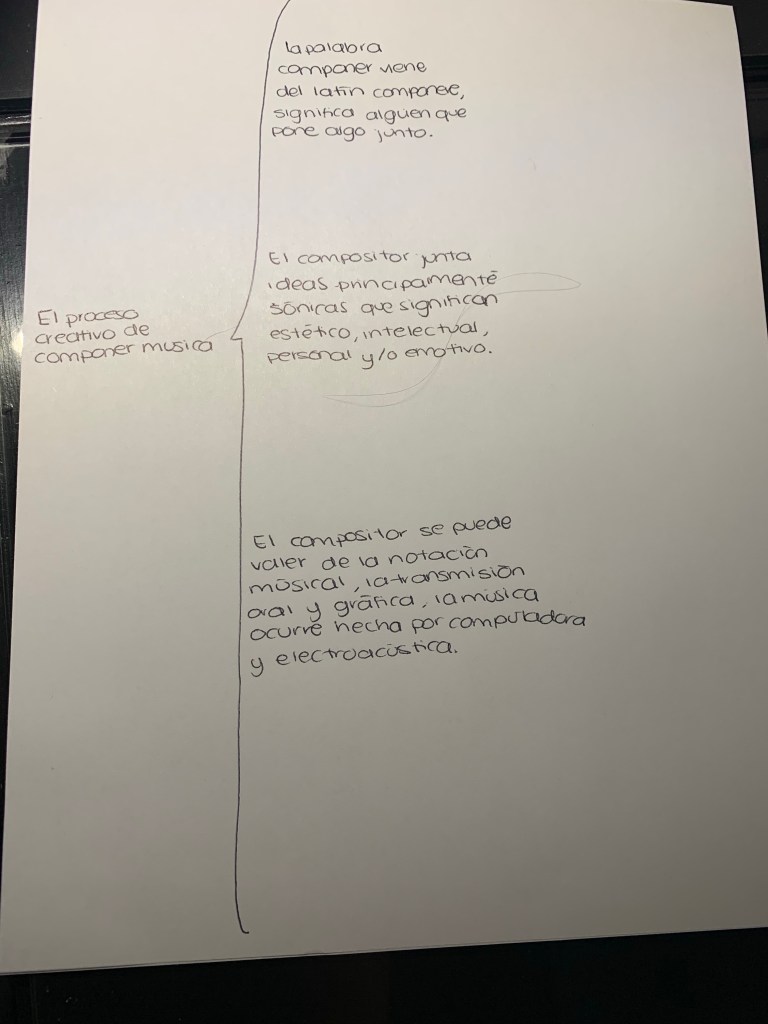 El proceso
creativo de
componer musica
la palabra
componer viene
del latín componere,
significa alguien que
pone algo junto.
El compositor junta
ideas principamenté
sónicas que significan
estético, intelectual,
personal y/o emotivo.
El compositor se puede
valer de la notación
músical, la transmisión
oral y gráfica, la música
ocurre hecha por computadora
y electroacústica.